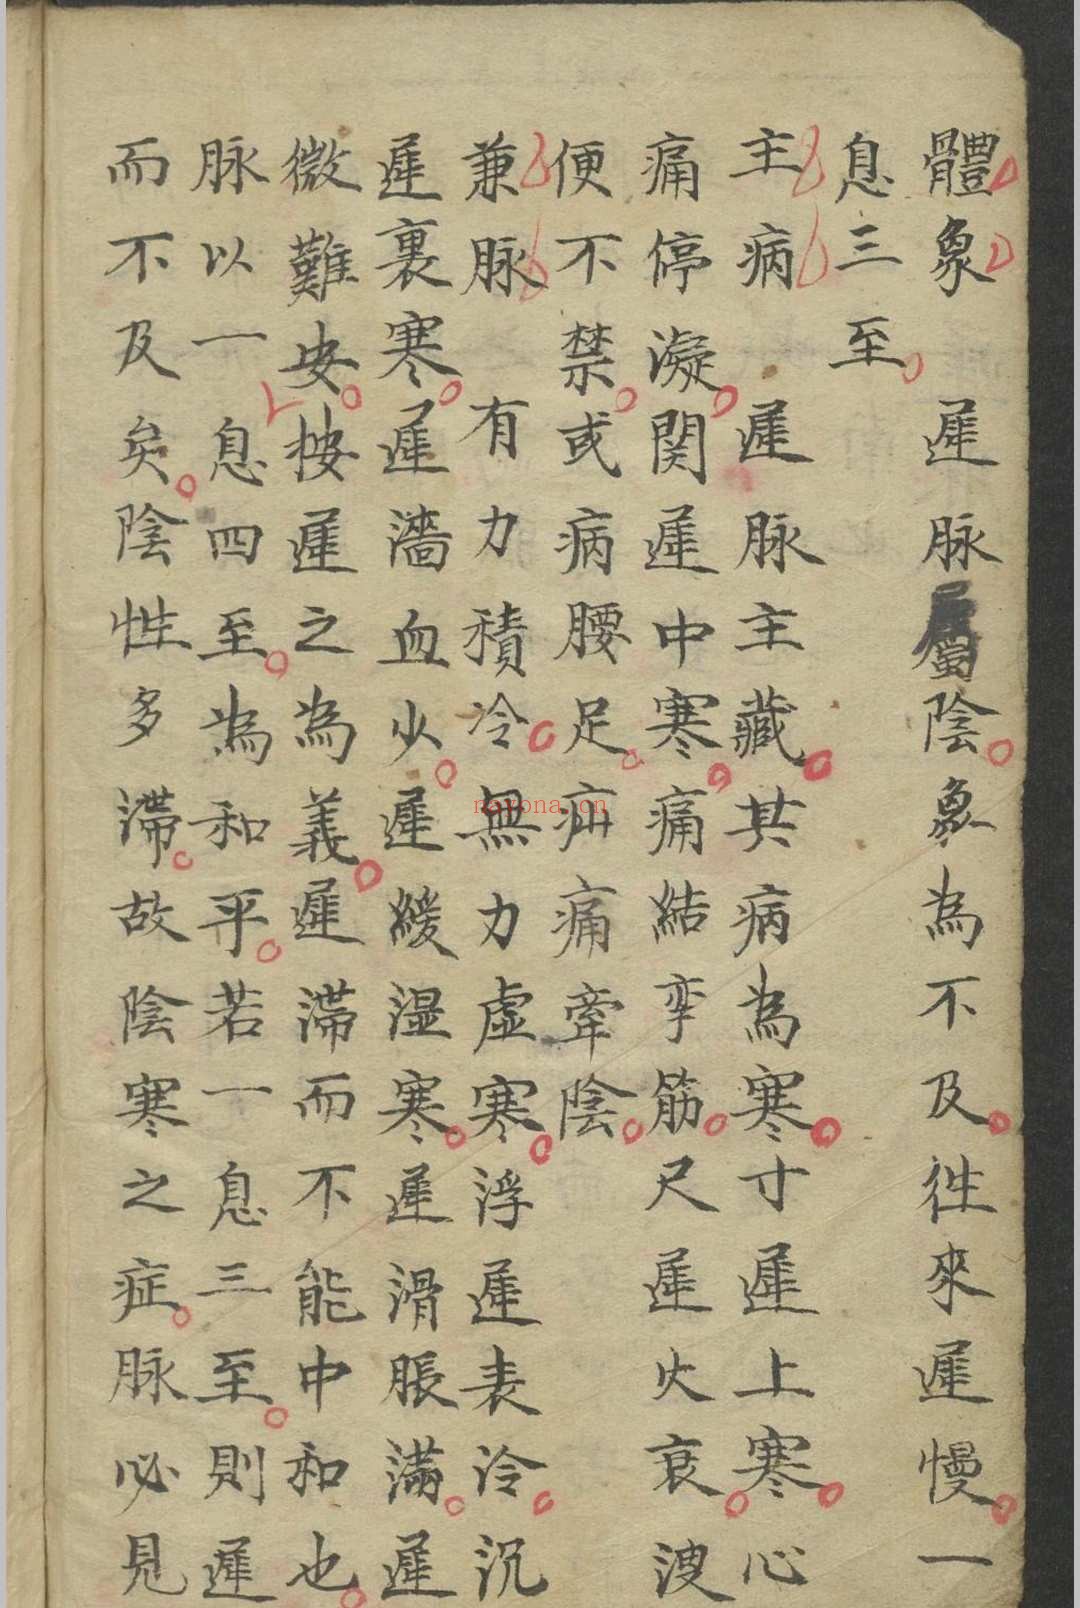 體象　遲脉屬陰象為不及徃來遲慢一
息三至
主病　遲脉主藏其病為寒寸遲上寒心
痛停凝関遲中寒痛結挛筋尺遲火衰溲
便不禁或病腰足疝痛牽陰
兼脉　有力積冷無力虛寒浮遲表冷沉
遲裏寒遲濇血少遲緩湿寒遲滑脹滿遲
微難安按遲之為義遲滯而不能中和也
脉以一息四至為和平若一息三至則遲
而不及矣陰性多滯故陰寒之症脉必見